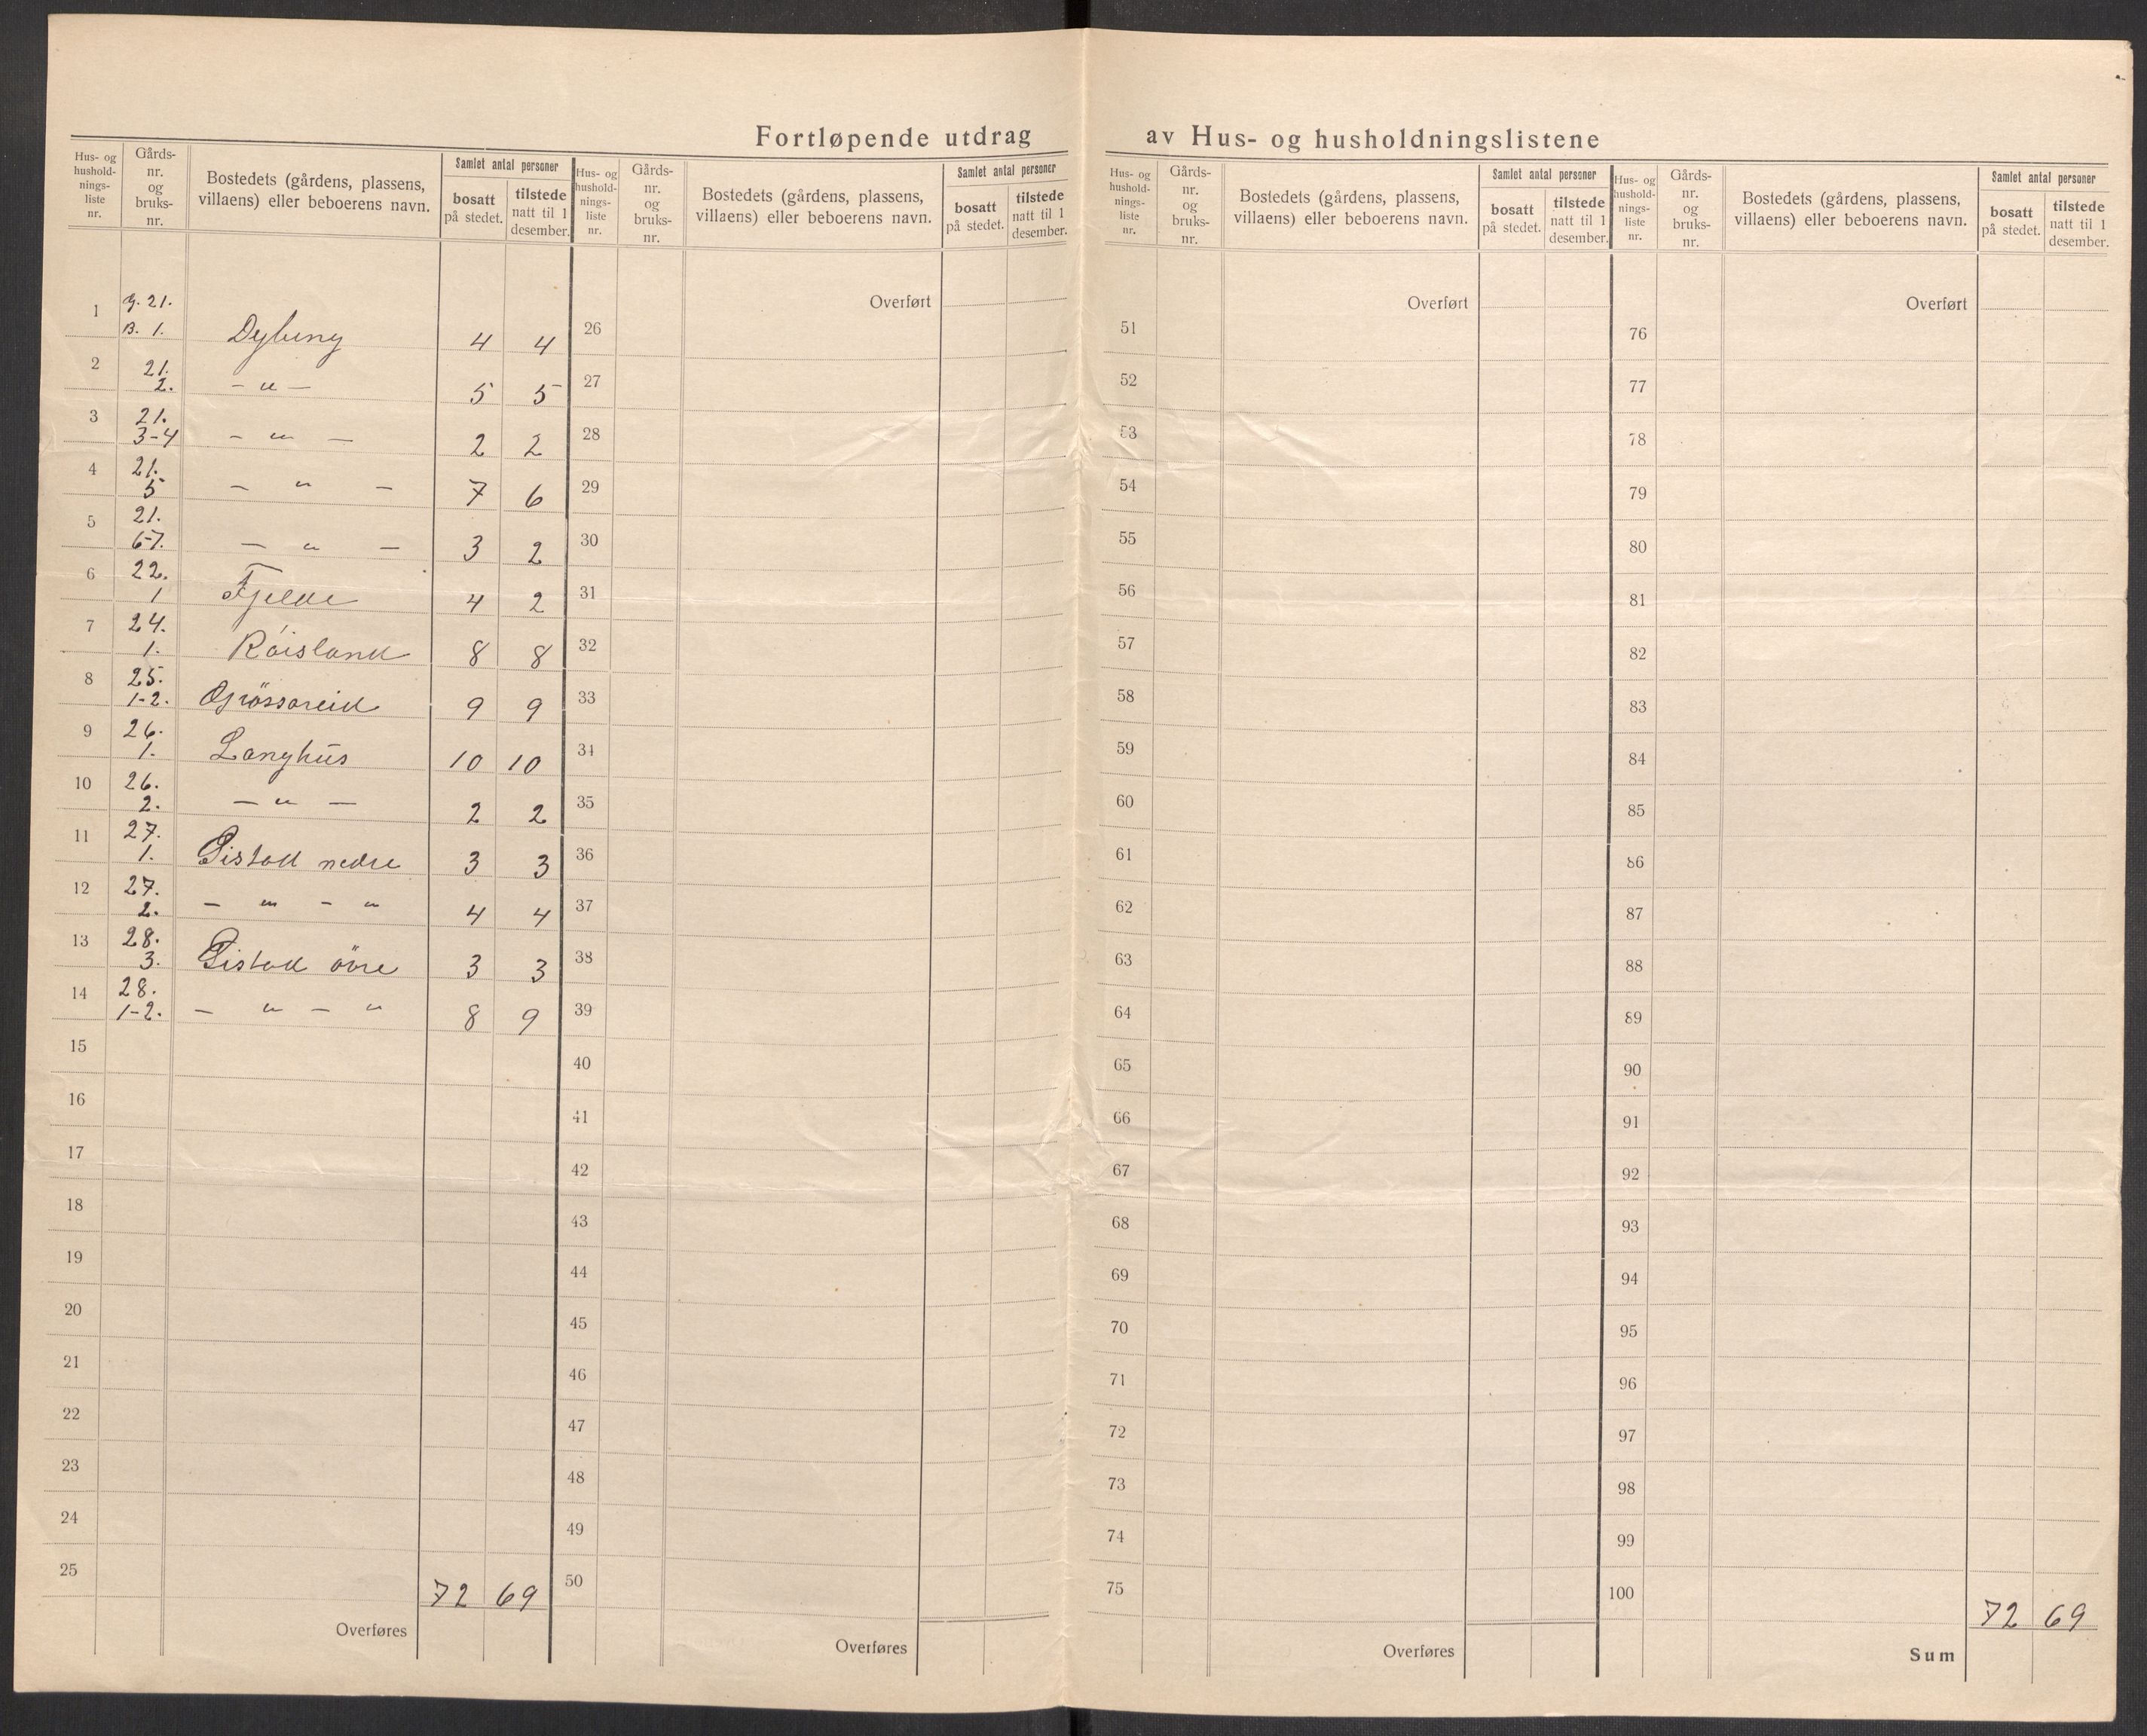 Fortløpende utdrag av Hus- og husholdningslistene
Hus- og hushold-nings-liste nr. | Gårds-nr. og bruks-nr. | Bostedets (gårdens, plassens, villaens) eller beboerens navn. | Samlet antal personer | bosatt på stedet. | tilstede natt til 1 desember.
Hus- og hushold-nings-liste nr. | Gårds-nr. og bruks-nr. | Bostedets (gårdens, plassens, villaens) eller beboerens navn. | Samlet antal personer | bosatt på stedet. | tilstede natt til 1 desember.
Hus- og hushold-nings-liste nr. | Gårds-nr. og bruks-nr. | Bostedets (gårdens, plassens, villaens) eller beboerens navn. | Samlet antal personer | bosatt på stedet. | tilstede natt til 1 desember.
Hus- og hushold-nings-liste nr. | Gårds-nr. og bruks-nr. | Bostedets (gårdens, plassens, villaens) eller beboerens navn. | Samlet antal personer | bosatt på stedet. | tilstede natt til 1 desember.
1 G. 21. B. 1. Dybing 4 4
2 21. 2. - " - 5 5
3 21. 3-4 - " - 2 2
4 21. 5 - " - 7 6
5 21. 6-7. - " - 3 2
6 22. 1 Fjelde 4 2
7 24. 1. Röisland 8 8
8 25. 1-2. Grössereid 9 9
9 26. 1. Langhus 10 10
10 26. 2. - " - 2 2
11 27. 1. Gistad nedre 3 3
12 27. 2. - " - " 4 4
13 28. 3. Gistad övre 3 3
14 28. 1-2. - " - " 8 9
15
16
17
18
19
20
21
22
23
24
25
72 69
Overføres
Overført
26
27
28
29
30
31
32
33
34
35
36
37
38
39
40
41
42
43
44
45
46
47
48
49
50
Overføres
Overført
51
52
53
54
55
56
57
58
59
60
61
62
63
64
65
66
67
68
69
70
71
72
73
74
75
Overføres
Overført
76
77
78
79
80
81
82
83
84
85
86
87
88
89
90
91
92
93
94
95
96
97
98
99
100
72 69
Sum